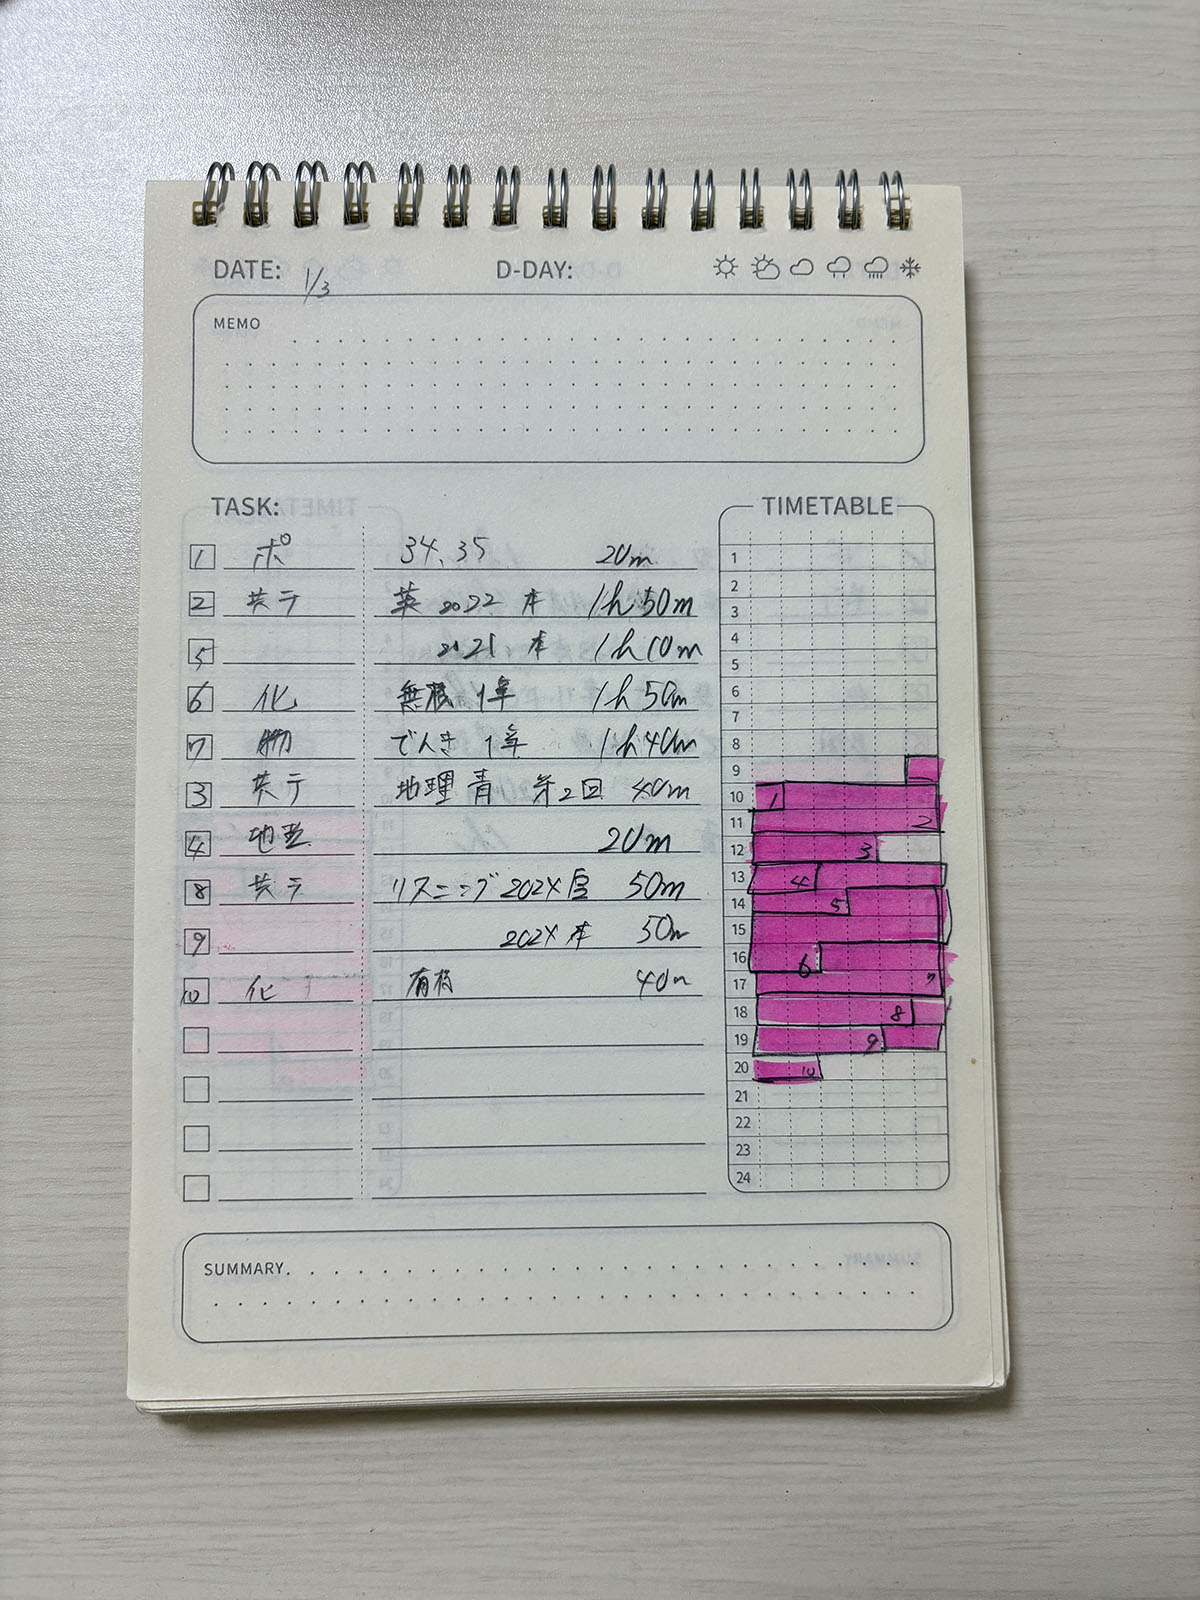 DATE: 1/3 D-DAY:
MEMO
TASK:
1 ポ 34、35 20m
2 共テ 英 2022 本 1h 50m
5 2021 本 1h 10m
6 化 無機 1章 1h 50m
7 物 でんき 1章 1h 40m
3 共テ 地理 青 第2回 40m
4 地理 20m
8 共テ リスニング 202X 50m
9 202X 本 50m
10 化 有機 40m
TIMETABLE
1
2
3
4
5
6
7
8
9
10 1
11 2
12 3
13 4
14 5
15
16 6
17 7
18 8
19 9
20 10
21
22
23
24
SUMMARY